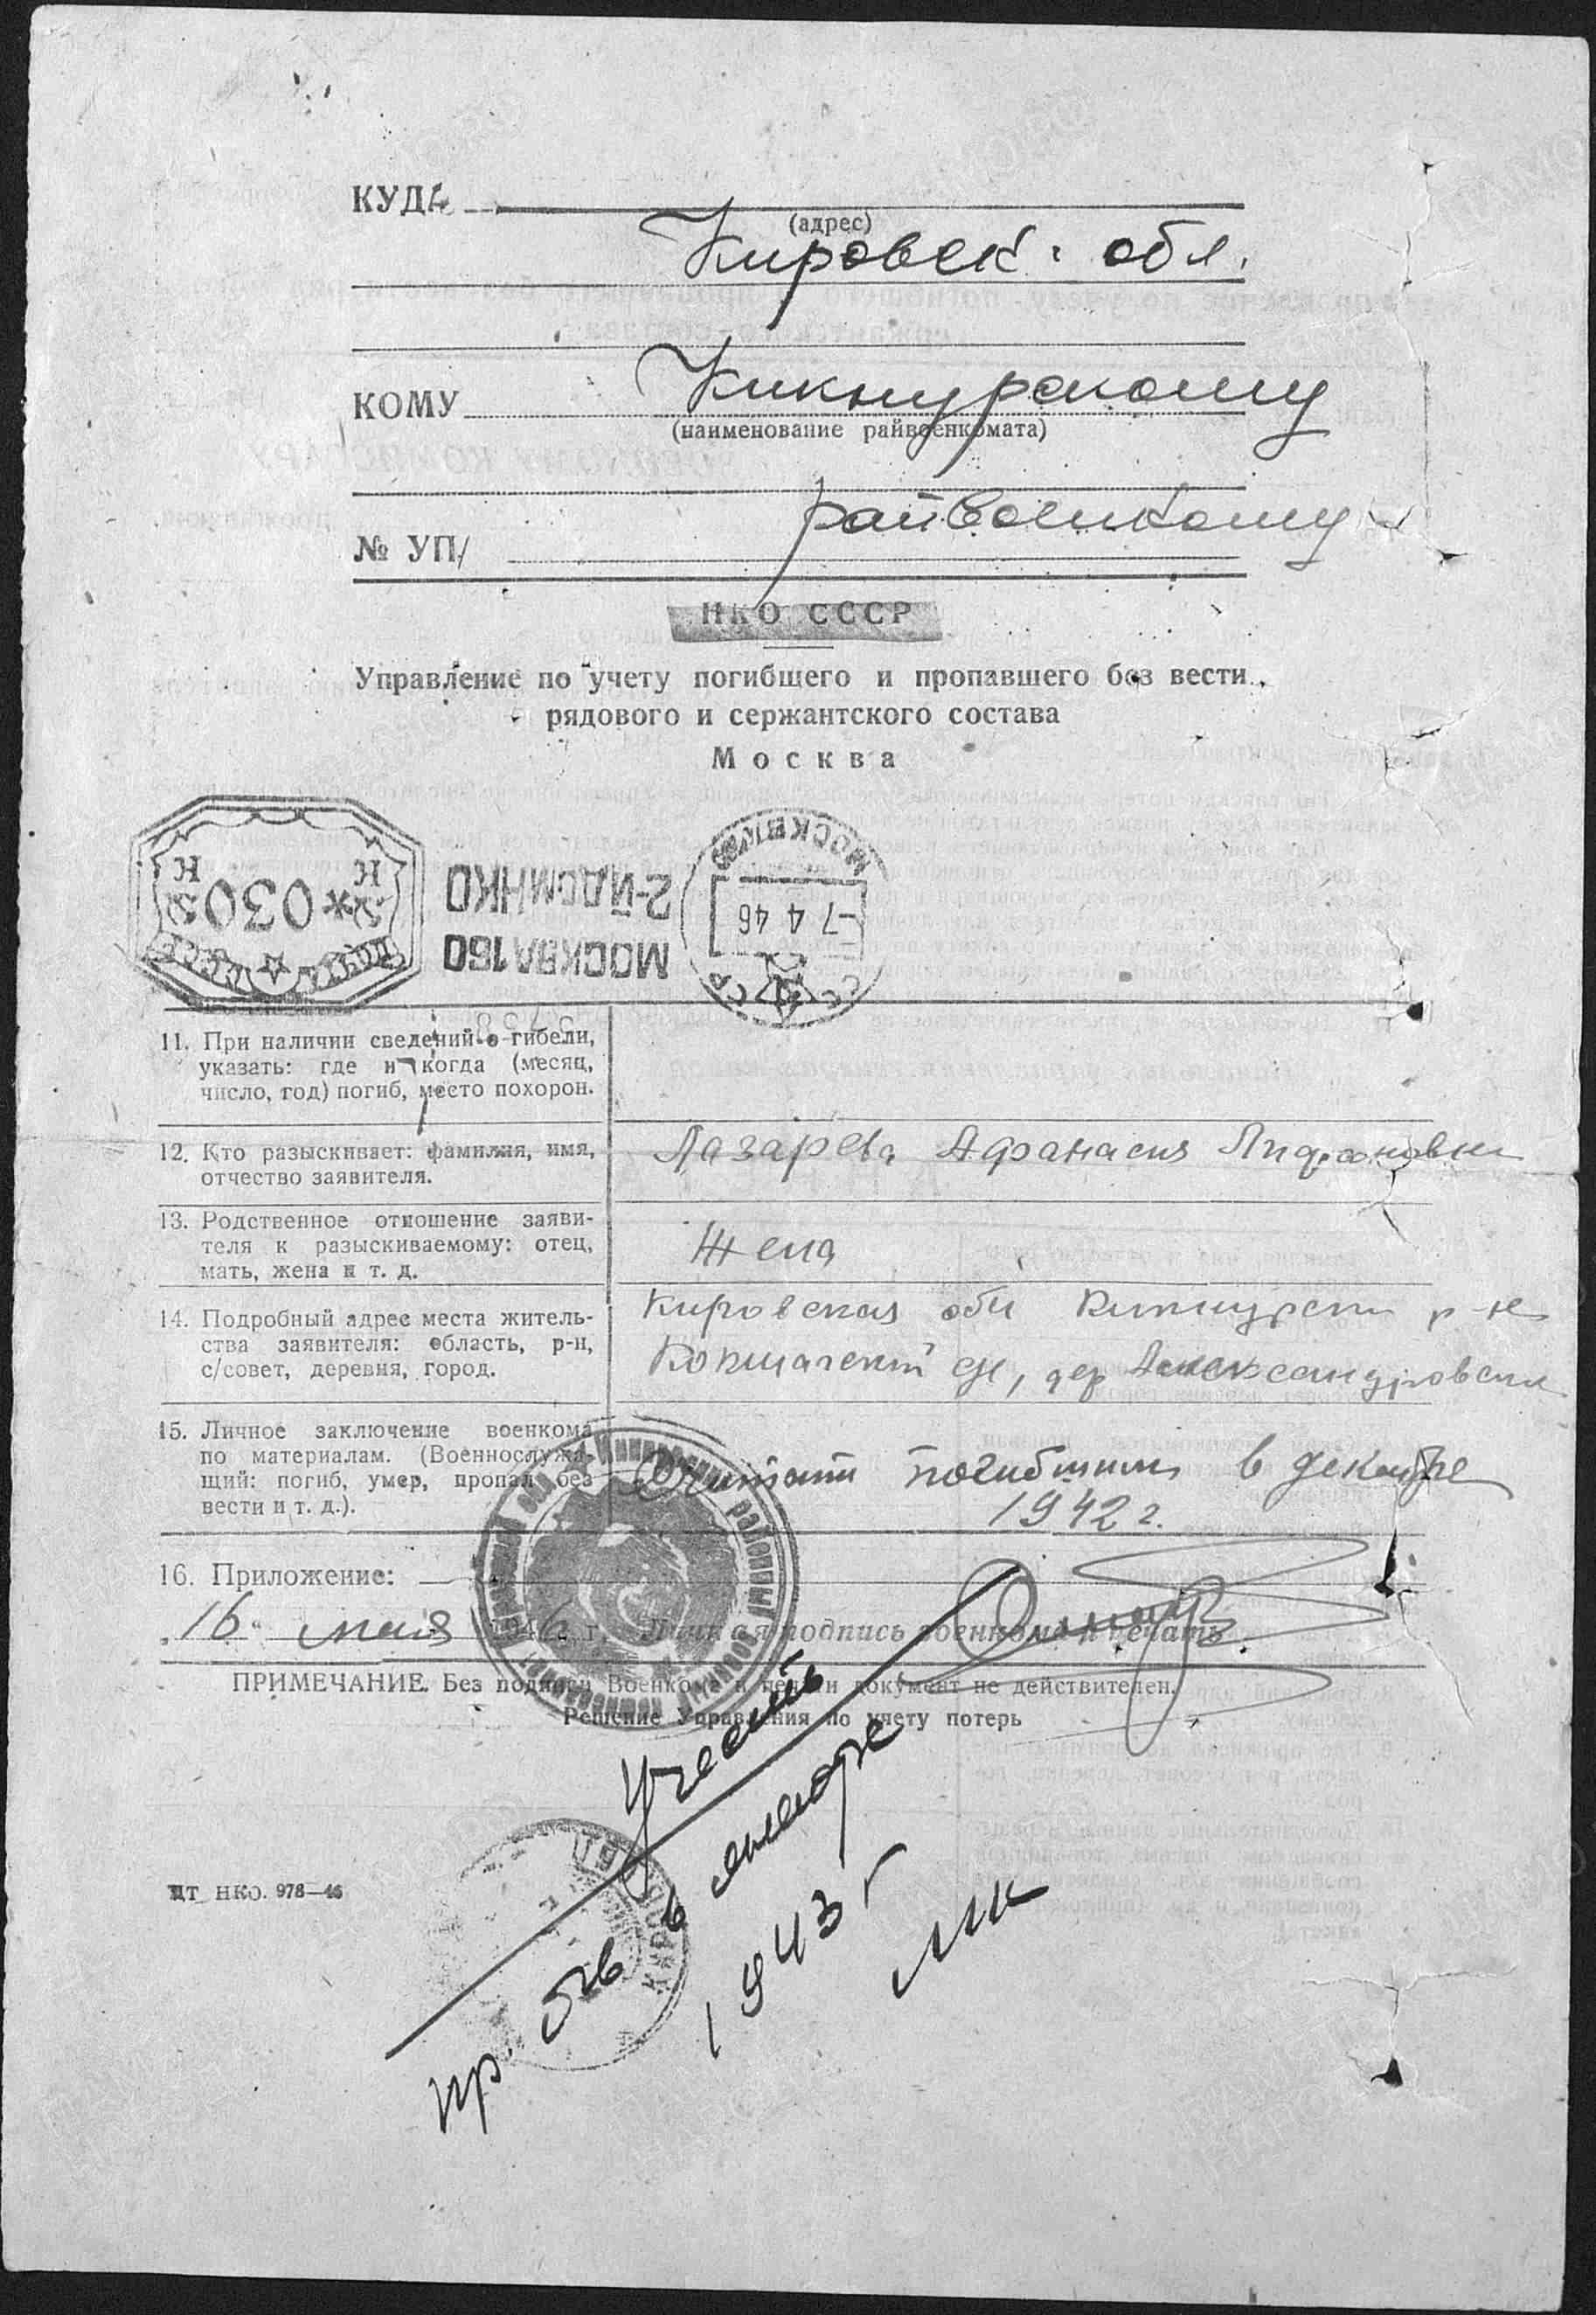 КУДА
(адрес)
Кировск. обл.
КОМУ Кикнурскому
(наименование райвоенкомата)
райвоенкому
№ УП/
НКО СССР
Управление по учету погибщего и пропавшего без вести
рядового и сержантского состава
Москва
030
К К
ПОЧТА СССР
МОСКВА 160
2-Й ДОМ НКО
МОСКВА
-7 4 46
СССР
11. При наличии сведений о гибели,
указать: где и когда (месяц,
число, год) погиб, место похорон.
12. Кто разыскивает: фамилия, имя,
отчество заявителя.
Лазарева Афанасия
13. Родственное отношение заяви-
теля к разыскиваемому: отец,
мать, жена и т. д.
Жена
14. Подробный адрес места житель-
ства заявителя: область, р-н,
с/совет, деревня, город.
Кировская обл Кикнурски р-н
с/с, дер Александровски
15. Личное заключение военкома
по материалам. (Военнослужа-
щий: погиб, умер, пропал без
вести и т. д.).
Считать погибшим в декабре
1942 г.
16. Приложение:
„16" мая 1946 г. Личная подпись военкома и печать
ПРИМЕЧАНИЕ. Без подписи Военкома и печати документ не действителен.
Решение Управления по учету потерь
Учесть
пр. б/в в январе
1943 г
ЦТ НКО. 978—46